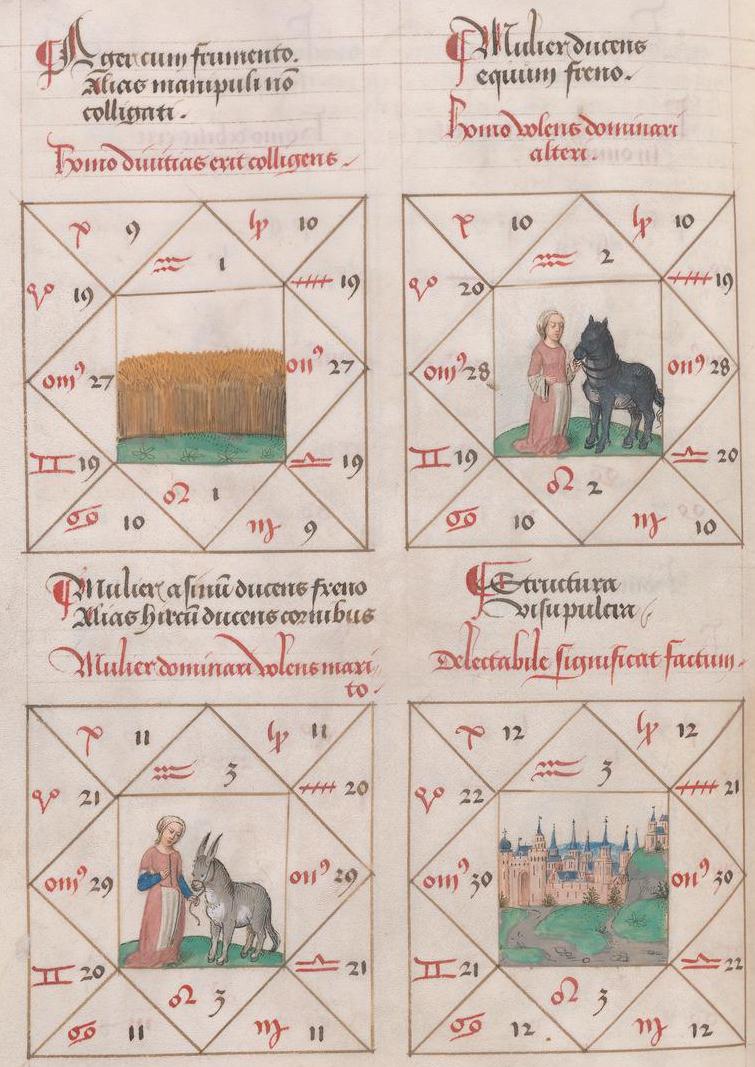 Ager cum frumento.
Alias manipuli nō
colligati.
Homo divitias erit colligens.
♓ 9
♑ 10
♒ 1
♈ 19
19
27
27
♊ 19
♎ 19
♌ 1
♋ 10
♍ 9
Mulier ducens
equum freno.
Homo volens dominari
alteri.
♓ 10
♑ 10
♒ 2
♈ 20
19
28
28
♊ 19
♎ 20
♌ 2
♋ 10
♍ 10
Mulier asinū ducens freno
Alias hircū ducens cornibus
Mulier dominari volens mari
to.
♓ 11
♑ 11
♒ 3
♈ 21
20
29
29
♊ 20
♎ 21
♌ 3
♋ 11
♍ 11
Structura
visu pulcra
Delectabile significat factum.
♓ 12
♑ 12
♒ 3
♈ 22
21
30
30
♊ 21
♎ 22
♌ 3
♋ 12
♍ 12